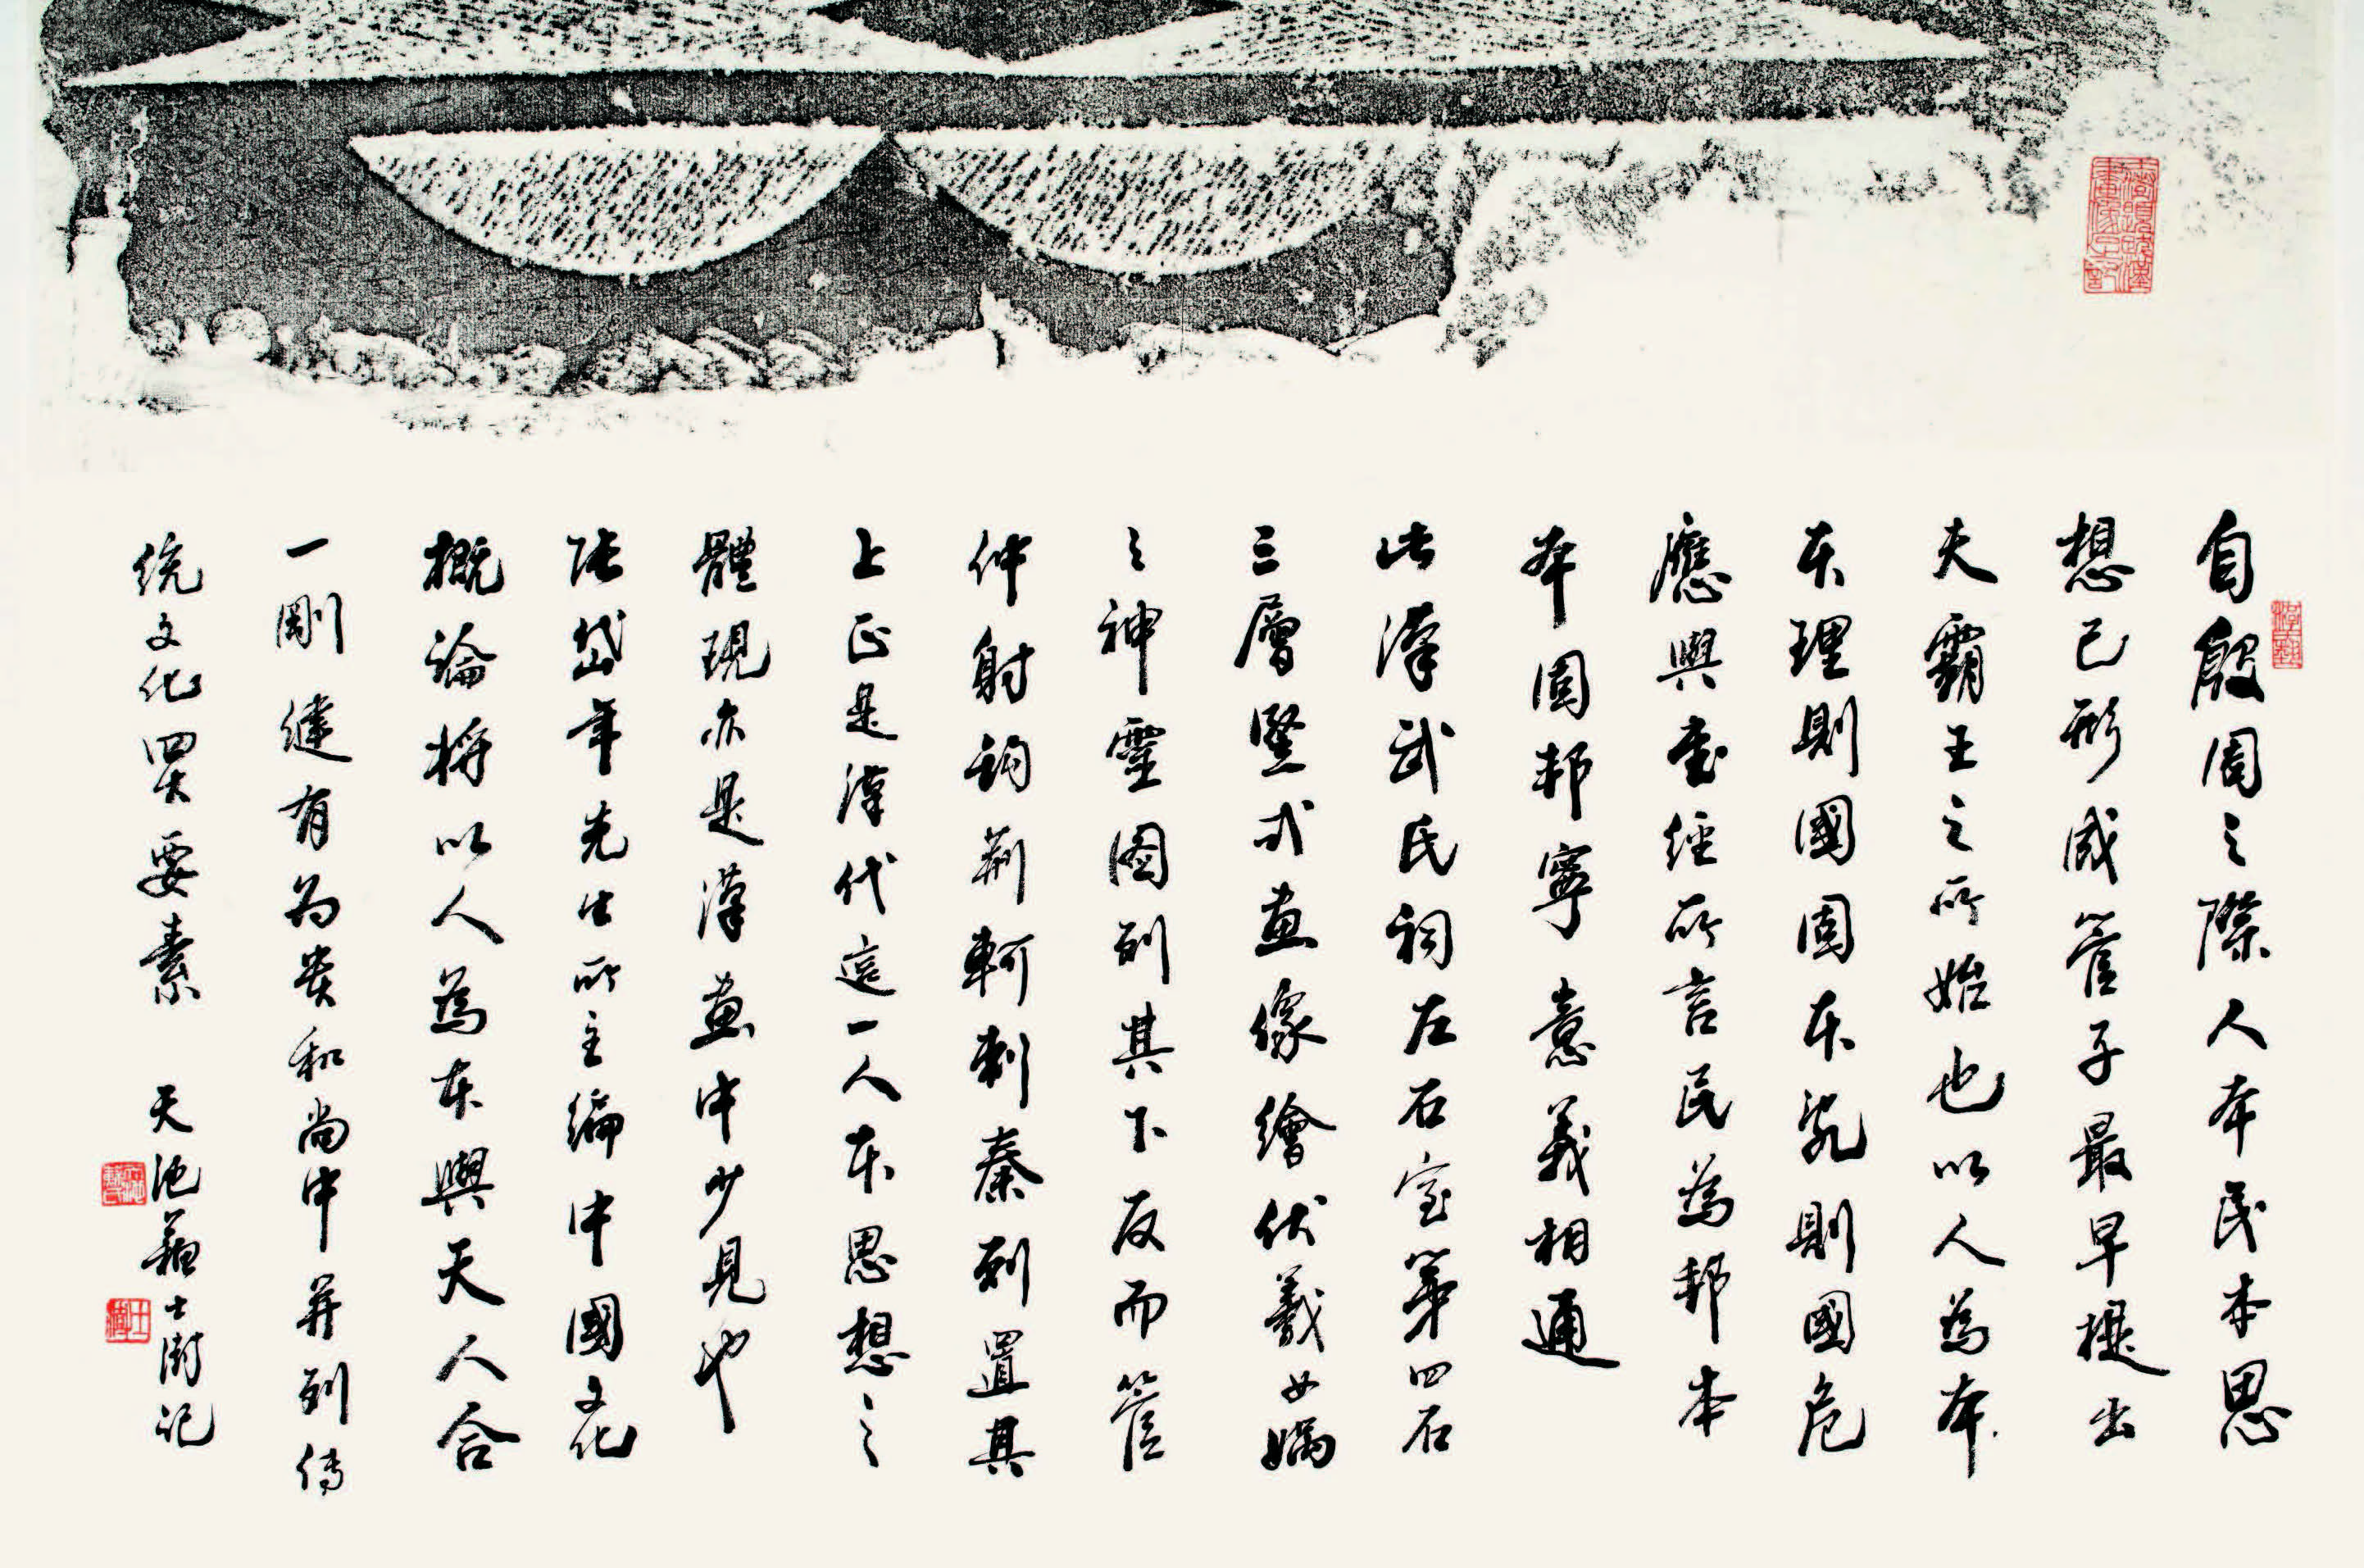 自殷周之際人本民本思
想已形成管子最早提出
夫霸王之所始也以人為本
本理則國固本亂則國危
應與書經所言民為邦本
本固邦寧意義相通
此漢武氏祠左石室第四石
三層竪式畫像繪伏羲女媧
之神靈圖列其下反而管
仲射鉤荊軻刺秦列置其
上正是漢代這一人本思想之
體現亦是漢畫中少見也
張岱年先生所主編中國文化
概論将以人為本與天人合
一剛健有为貴和尚中并列传
统文化四大要素 天池蘇士澍记